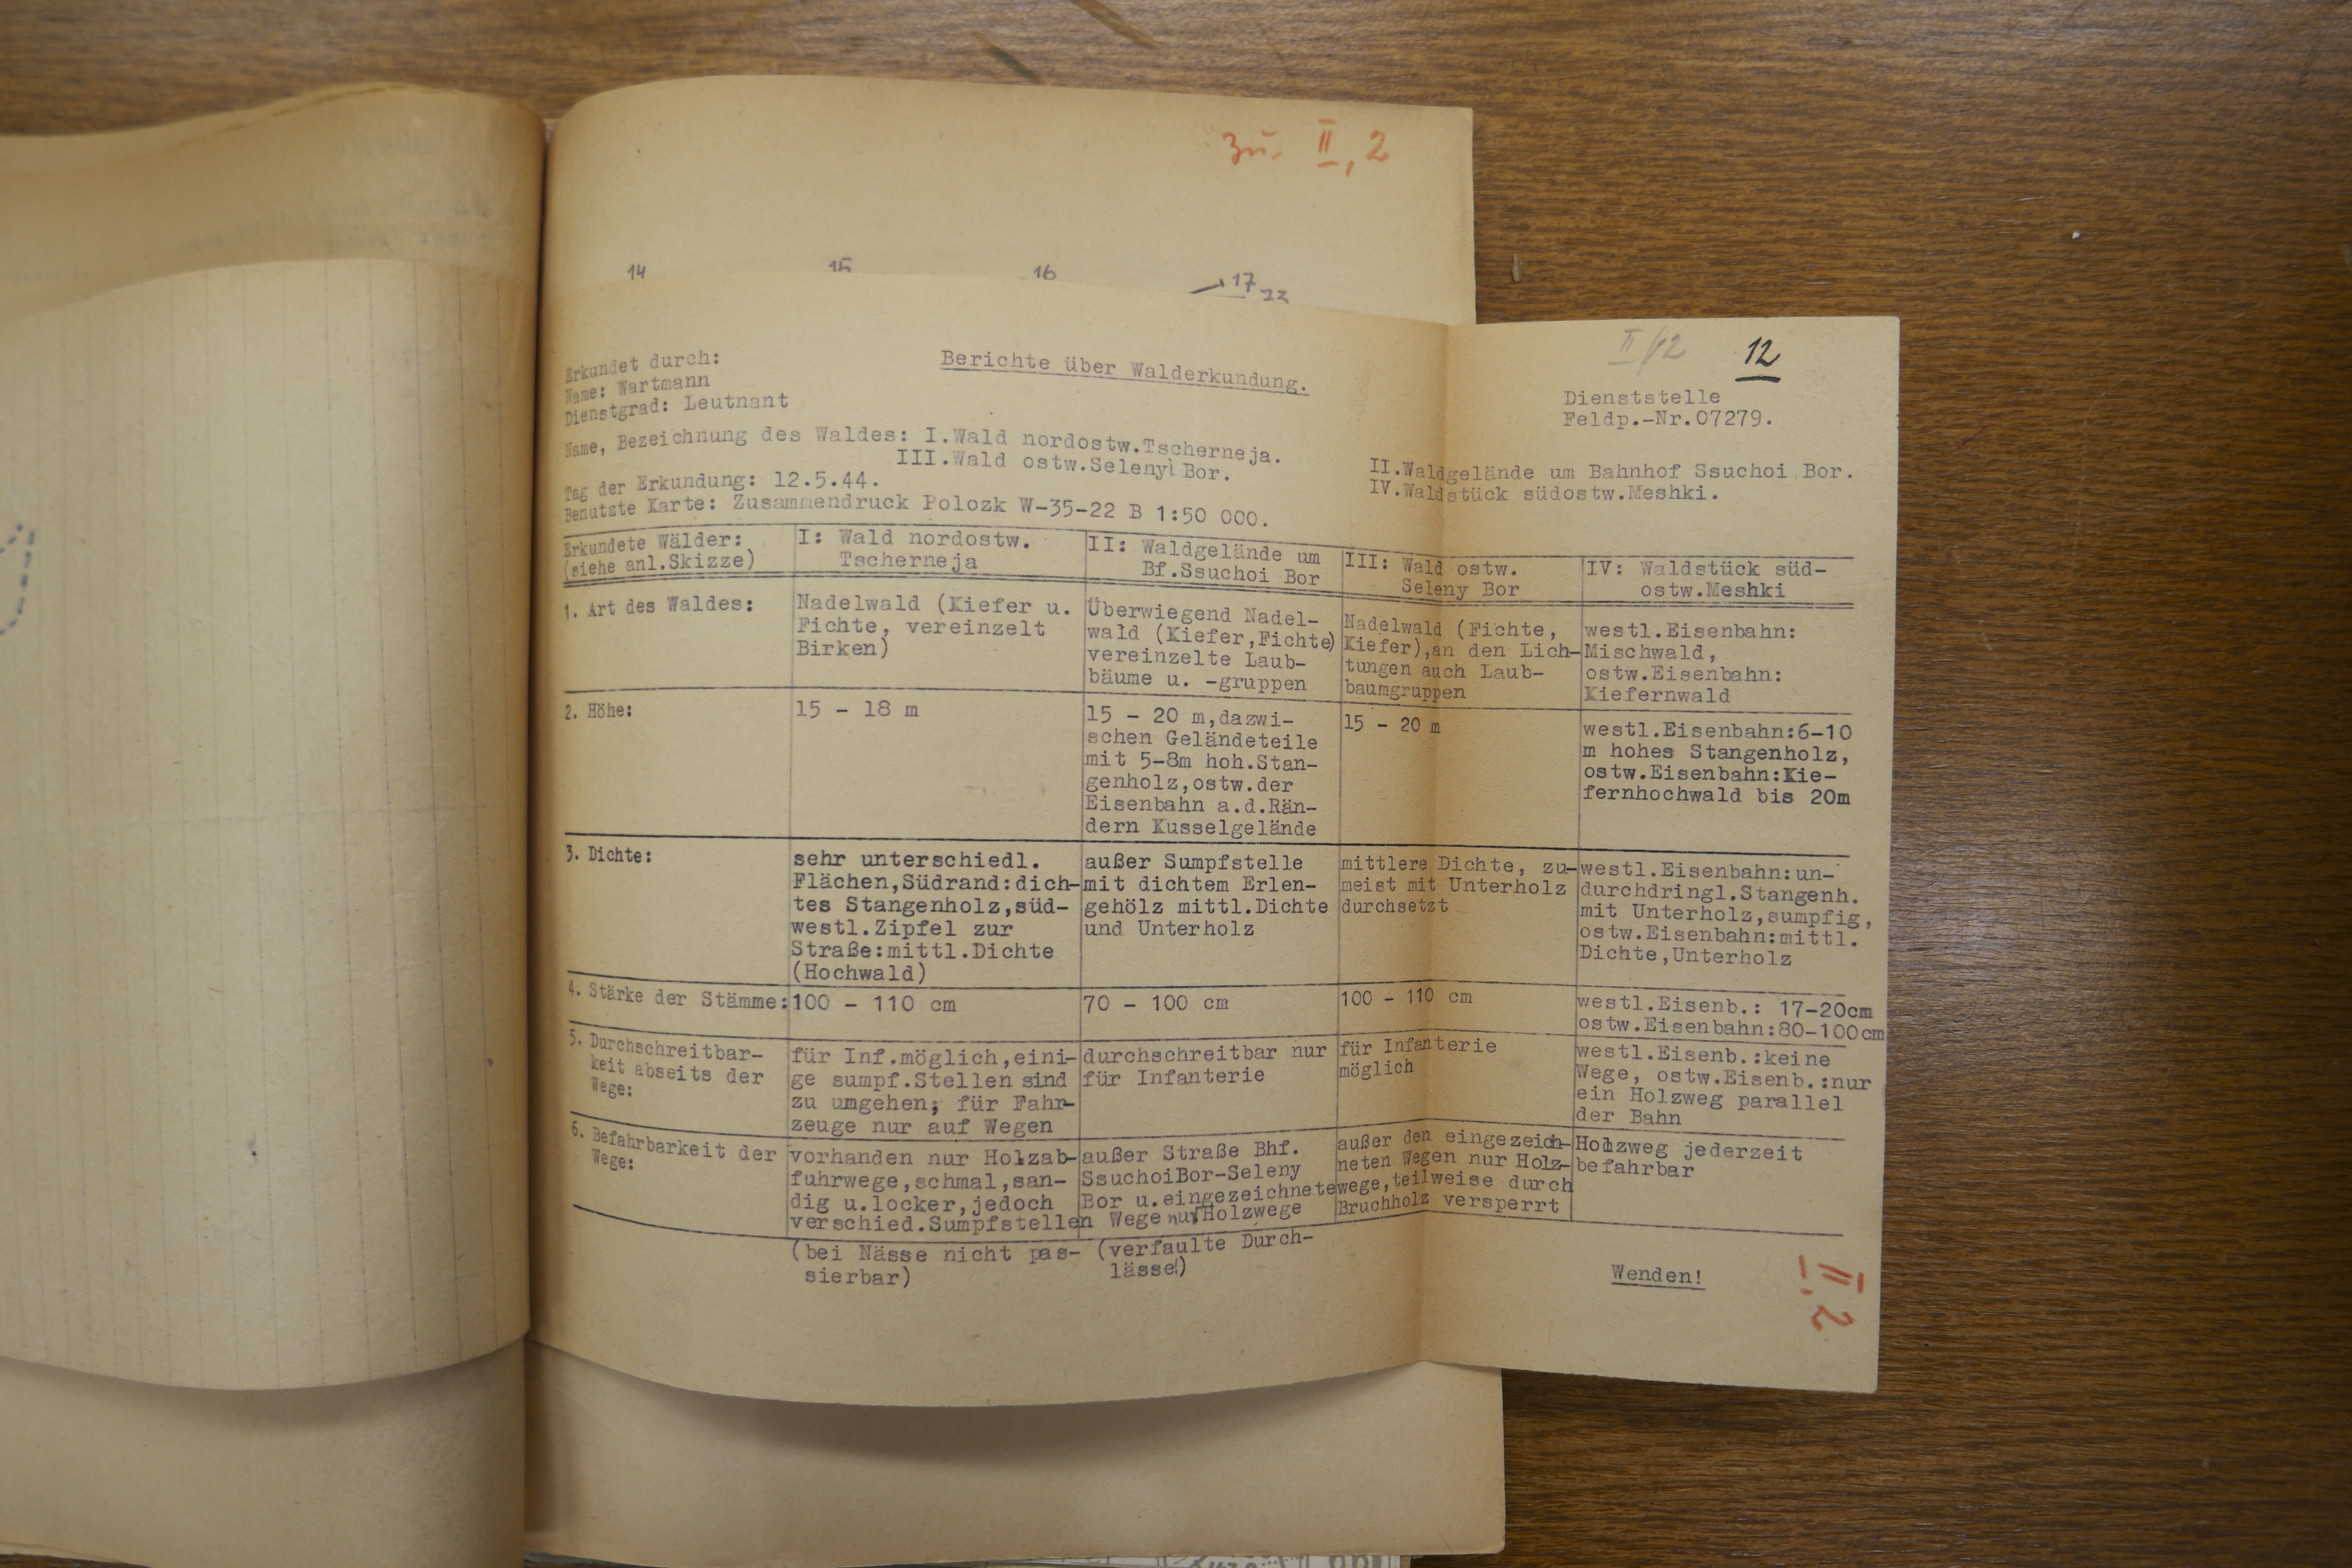 zu. II, 2
14 15 16 17
II/12 12
Erkundet durch:
Name: Wartmann
Dienstgrad: Leutnant
Berichte über Walderkundung.
Dienststelle
Feldp.-Nr.07279.
Name, Bezeichnung des Waldes: I.Wald nordostw.Tscherneja.
III.Wald ostw.Seleny Bor.
II.Waldgelände um Bahnhof Ssuchoi Bor.
IV.Waldstück südostw.Meshki.
Tag der Erkundung: 12.5.44.
Benutzte Karte: Zusammendruck Polozk W-35-22 B 1:50 000.
Erkundete Wälder:
(siehe anl.Skizze)
I: Wald nordostw.
Tscherneja
II: Waldgelände um
Bf.Ssuchoi Bor
III: Wald ostw.
Seleny Bor
IV: Waldstück süd-
ostw.Meshki
1. Art des Waldes:
Nadelwald (Kiefer u.
Fichte, vereinzelt
Birken)
Überwiegend Nadel-
wald (Kiefer,Fichte)
vereinzelte Laub-
bäume u. -gruppen
Nadelwald (Fichte,
Kiefer),an den Lich-
tungen auch Laub-
baumgruppen
westl.Eisenbahn:
Mischwald,
ostw.Eisenbahn:
Kiefernwald
2. Höhe:
15 - 18 m
15 - 20 m,dazwi-
schen Geländeteile
mit 5-8m hoh.Stan-
genholz,ostw.der
Eisenbahn a.d.Rän-
dern Kusselgelände
15 - 20 m
westl.Eisenbahn:6-10
m hohes Stangenholz,
ostw.Eisenbahn:Kie-
fernhochwald bis 20m
3. Dichte:
sehr unterschiedl.
Flächen,Südrand:dich-
tes Stangenholz,süd-
westl.Zipfel zur
Straße:mittl.Dichte
(Hochwald)
außer Sumpfstelle
mit dichtem Erlen-
gehölz mittl.Dichte
und Unterholz
mittlere Dichte, zu-
meist mit Unterholz
durchsetzt
westl.Eisenbahn:un-
durchdringl.Stangenh.
mit Unterholz,sumpfig,
ostw.Eisenbahn:mittl.
Dichte,Unterholz
4. Stärke der Stämme:
100 - 110 cm
70 - 100 cm
100 - 110 cm
westl.Eisenb.: 17-20cm
ostw.Eisenbahn:80-100cm
5. Durchschreitbar-
keit abseits der
Wege:
für Inf.möglich,eini-
ge sumpf.Stellen sind
zu umgehen; für Fahr-
zeuge nur auf Wegen
durchschreitbar nur
für Infanterie
für Infanterie
möglich
westl.Eisenb.:keine
Wege, ostw.Eisenb.:nur
ein Holzweg parallel
der Bahn
6. Befahrbarkeit der
Wege:
vorhanden nur Holzab-
fuhrwege,schmal,san-
dig u.locker,jedoch
verschied.Sumpfstellen
(bei Nässe nicht pas-
sierbar)
außer Straße Bhf.
SsuchoiBor-Seleny
Bor u.eingezeichnete
Wege nur Holzwege
(verfaulte Durch-
lässe!)
außer den eingezeich-
neten Wegen nur Holz-
wege,teilweise durch
Bruchholz versperrt
Holzweg jederzeit
befahrbar
Wenden!
II.2